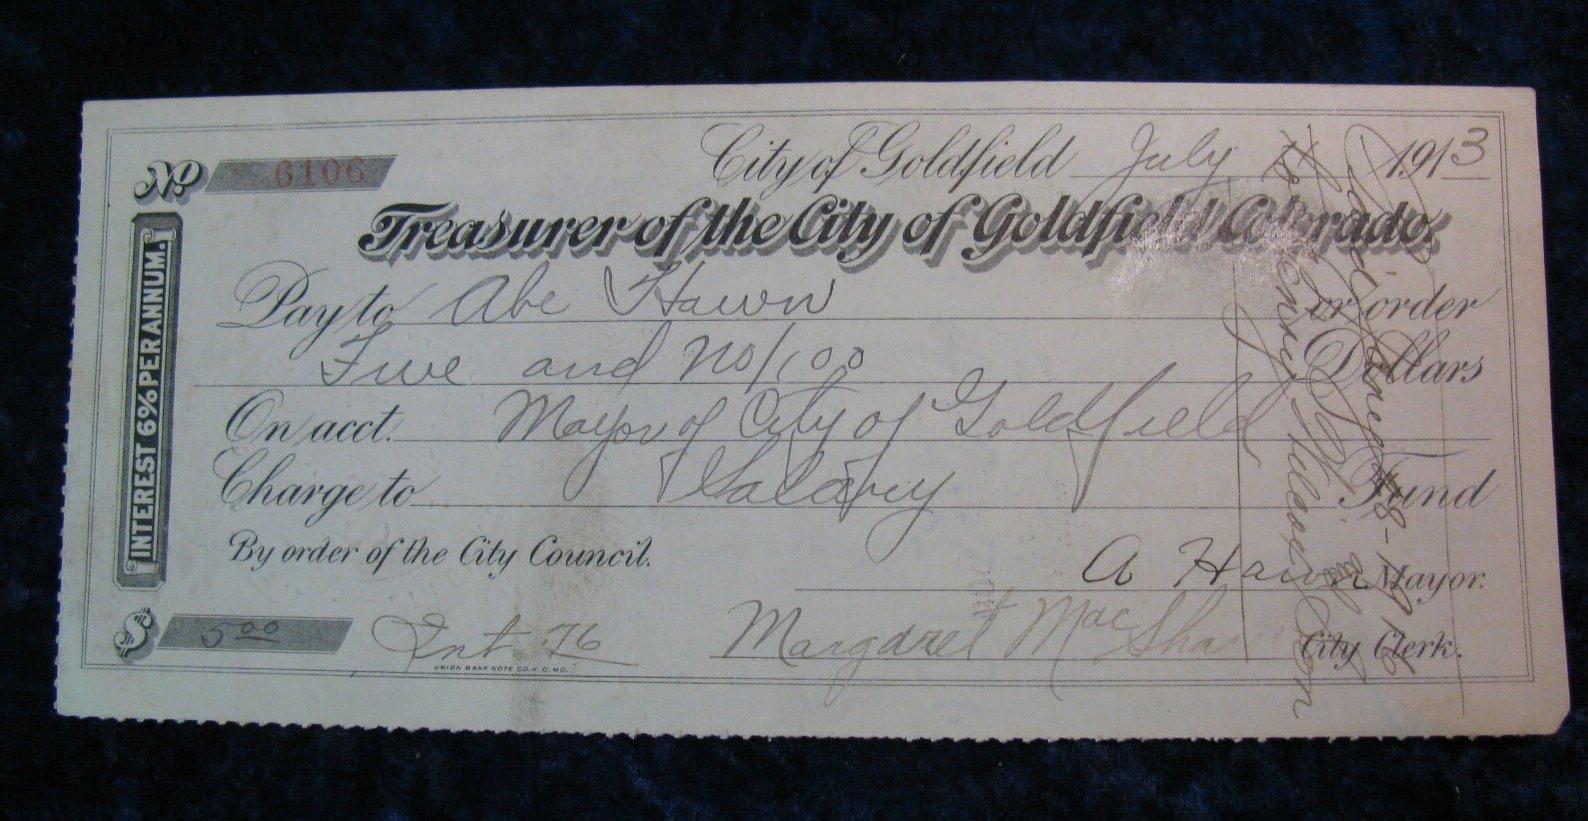 No. 6106
City of Goldfield July 1913
Treasurer of the City of Goldfield Colorado.
Pay to Abe Hawn or order
Five and no/100 Dollars
On acct. Mayor of City of Goldfield
Charge to Salary Fund
By order of the City Council.
A Hawn Mayor.
Margaret MacSha City Clerk.
$ 5 00 Int 76
UNION BANK NOTE CO. K. C. MO.
INTEREST 6% PER ANNUM.